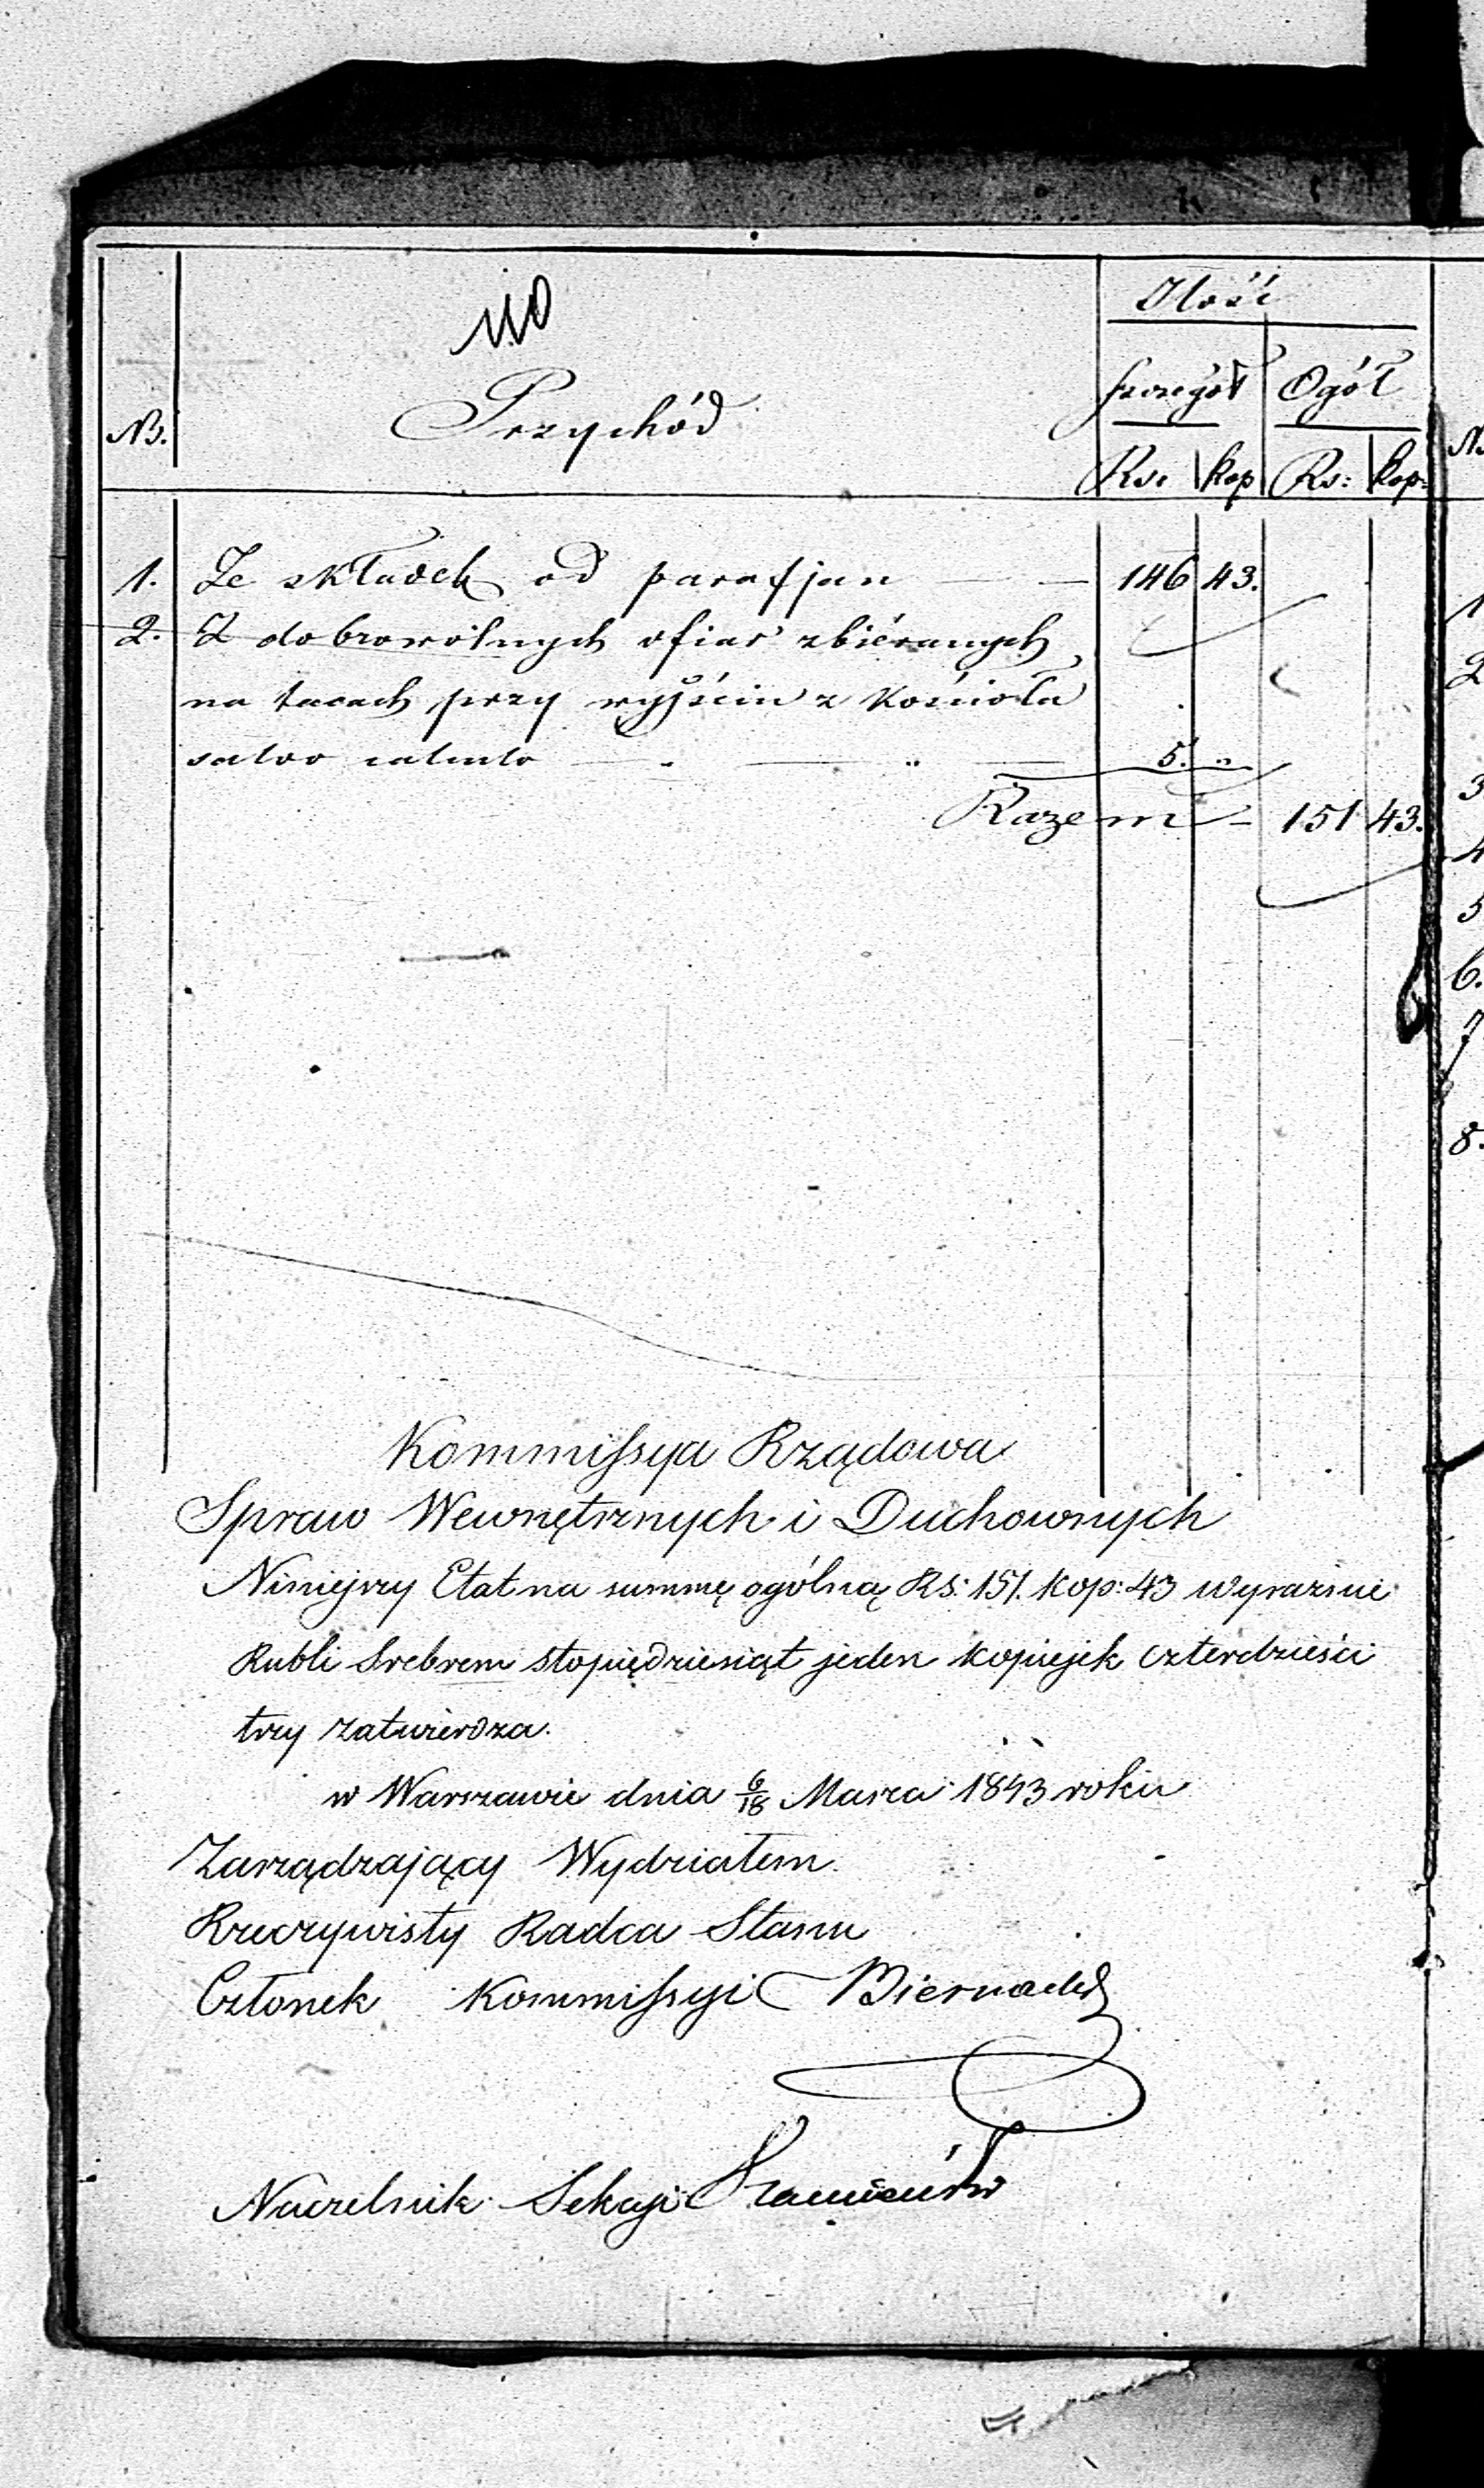 110
Ilość
Szczegół Ogół
Nro. Przychód
Rs: kop Rs: kop:
1. Ze składek od parafjan 146 43.
2. Z dobrowolnych ofiar zbiéranych
na tacach przy wyjściu z kościoła
salvo calculo 5. „
Razem 151 43.
Kommissya Rządowa
Spraw Wewnętrznych i Duchownych
Niniejszy Etat na summę ogólną Rs: 151. kop: 43 wyraźnie
Rubli Srebrem stopiędziesiąt jeden kopiejek czterdzieści
trzy zatwierdza.
w Warszawie dnia 6/18 Marca 1843 roku
Zarządzający Wydziałem
Rzeczywisty Radca Stanu
Członek Kommissyi Biernacki
Naczelnik Sekcyi